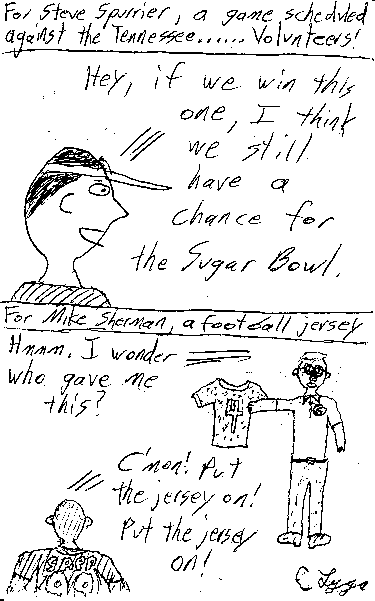 For Steve Spurrier, a game scheduled
against the Tennessee...... Volunteers!
Hey, if we win this
one, I think
we still
have a
chance for
the Sugar Bowl.
For Mike Sherman, a football jersey
Hmmm. I wonder
who gave me
this?
C'mon! Put
the jersey on!
Put the jersey
on!
SAPP